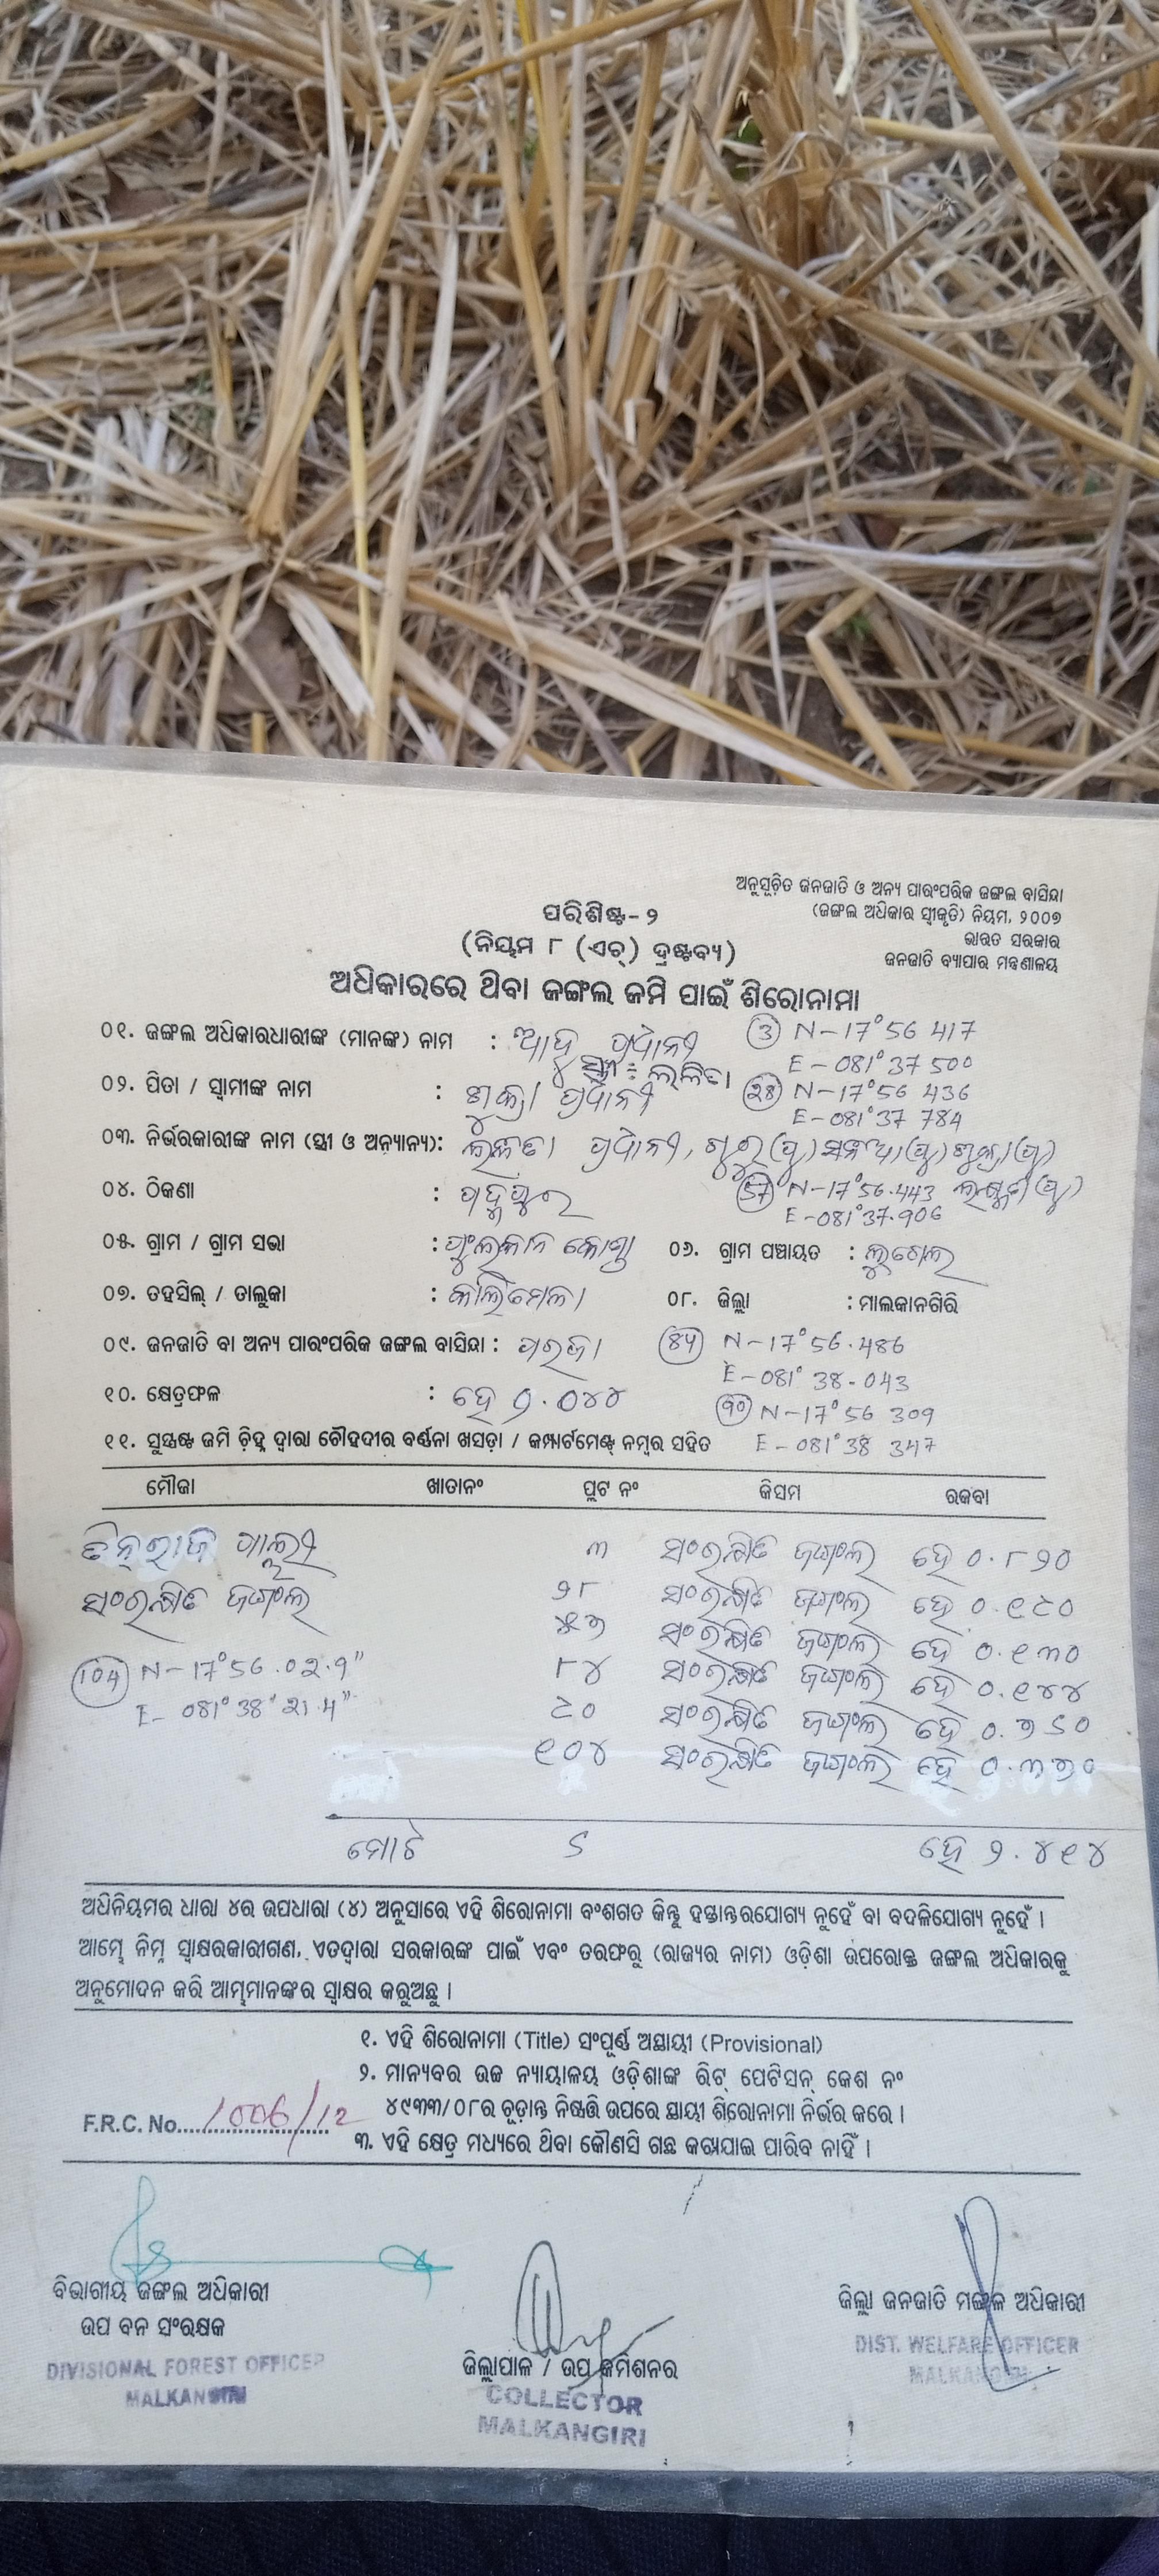 ଅନୁସୂଚିତ ଜନଜାତି ଓ ଅନ୍ୟ ପାରଂପରିକ ଜଙ୍ଗଲ ବାସିନ୍ଦା
(ଜଙ୍ଗଲ ଅଧିକାର ସ୍ୱୀକୃତି) ନିୟମ, ୨୦୦୭
ଭାରତ ସରକାର
ଜନଜାତି ବ୍ୟାପାର ମନ୍ତ୍ରଣାଳୟ
ପରିଶିଷ୍ଟ-୨
(ନିୟମ ୮ (ଏଚ୍) ଦ୍ରଷ୍ଟବ୍ୟ)
ଅଧିକାରରେ ଥିବା ଜଙ୍ଗଲ ଜମି ପାଇଁ ଶିରୋନାମା
୦୧. ଜଙ୍ଗଲ ଅଧିକାରଧାରୀଙ୍କ (ମାନଙ୍କ) ନାମ : ପ୍ରଧାନୀ (3) N-17°56 417
ସ୍ତ୍ରୀ ÷ ଲଳିତା E-081°37 500
୦୨. ପିତା / ସ୍ୱାମୀଙ୍କ ନାମ : ପ୍ରଧାନୀ (28) N-17°56 436
E-081°37 784
୦୩. ନିର୍ଭରକାରୀଙ୍କ ନାମ (ସ୍ତ୍ରୀ ଓ ଅନ୍ୟାନ୍ୟ): ଲଳିତା ପ୍ରଧାନୀ,
୦୪. ଠିକଣା : (57) N-17°56.443
E-081°37.906
୦୫. ଗ୍ରାମ / ଗ୍ରାମ ସଭା : ୦୬. ଗ୍ରାମ ପଞ୍ଚାୟତ :
୦୭. ତହସିଲ୍ / ତାଲୁକା : କାଲିମେଳା ୦୮. ଜିଲ୍ଲା : ମାଲକାନଗିରି
୦୯. ଜନଜାତି ବା ଅନ୍ୟ ପାରଂପରିକ ଜଙ୍ଗଲ ବାସିନ୍ଦା : ପରଜା (84) N-17°56.486
E-081° 38-043
୧୦. କ୍ଷେତ୍ରଫଳ : ହେ (90) N-17°56 309
୧୧. ସୁସ୍ପଷ୍ଟ ଜମି ଚିହ୍ନ ଦ୍ୱାରା ଚୌହଦୀର ବର୍ଣ୍ଣନା ଖସଡ଼ା / କମ୍ପାର୍ଟମେଣ୍ଟ୍ ନମ୍ବର ସହିତ E-081°38 347
ମୌଜା ଖାତାନଂ ପ୍ଲଟ ନଂ କିସମ ରକବା
୩ ସଂରକ୍ଷିତ ଜଙ୍ଗଲ ହେ ୦.୮୨୦
ସଂରକ୍ଷିତ ଜଙ୍ଗଲ ୨୮ ସଂରକ୍ଷିତ ଜଙ୍ଗଲ ହେ ୦.୧୯୦
୫୭ ସଂରକ୍ଷିତ ଜଙ୍ଗଲ ହେ ୦.୧୩୦
(104) N-17°56.02.9" ୮୪ ସଂରକ୍ଷିତ ଜଙ୍ଗଲ ହେ ୦.୧୪୪
E- 081°38'21.4" ୯୦ ସଂରକ୍ଷିତ ଜଙ୍ଗଲ ହେ ୦.୭୬୦
୧୦୪ ସଂରକ୍ଷିତ ଜଙ୍ଗଲ ହେ ୦.୩୭୦
ମୋଟ ୬ ହେ ୨.୪୧୪
ଅଧିନିୟମର ଧାରା ୪ର ଉପଧାରା (୪) ଅନୁସାରେ ଏହି ଶିରୋନାମା ବଂଶଗତ କିନ୍ତୁ ହସ୍ତାନ୍ତରଯୋଗ୍ୟ ନୁହେଁ ବା ବଦଳିଯୋଗ୍ୟ ନୁହେଁ ।
ଆମ୍ଭେ ନିମ୍ନ ସ୍ୱାକ୍ଷରକାରୀଗଣ, ଏତଦ୍ୱାରା ସରକାରଙ୍କ ପାଇଁ ଏବଂ ତରଫରୁ (ରାଜ୍ୟର ନାମ) ଓଡ଼ିଶା ଉପରୋକ୍ତ ଜଙ୍ଗଲ ଅଧିକାରକୁ
ଅନୁମୋଦନ କରି ଆମ୍ଭମାନଙ୍କର ସ୍ୱାକ୍ଷର କରୁଅଛୁ ।
୧. ଏହି ଶିରୋନାମା (Title) ସଂପୂର୍ଣ୍ଣ ଅସ୍ଥାୟୀ (Provisional)
୨. ମାନ୍ୟବର ଉଚ୍ଚ ନ୍ୟାୟାଳୟ ଓଡ଼ିଶାଙ୍କ ରିଟ୍ ପେଟିସନ୍ କେଶ ନଂ
୪୯୩୩/୦୮ର ଚୂଡ଼ାନ୍ତ ନିଷ୍ପତ୍ତି ଉପରେ ସ୍ଥାୟୀ ଶିରୋନାମା ନିର୍ଭର କରେ ।
F.R.C. No. 1006/12
୩. ଏହି କ୍ଷେତ୍ର ମଧ୍ୟରେ ଥିବା କୌଣସି ଗଛ କଟାଯାଇ ପାରିବ ନାହିଁ ।
ବିଭାଗୀୟ ଜଙ୍ଗଲ ଅଧିକାରୀ
ଉପ ବନ ସଂରକ୍ଷକ
DIVISIONAL FOREST OFFICER
MALKANGIRI
ଜିଲ୍ଲାପାଳ / ଉପ କମିଶନର
COLLECTOR
MALKANGIRI
ଜିଲ୍ଲା ଜନଜାତି ମଙ୍ଗଳ ଅଧିକାରୀ
DIST. WELFARE OFFICER
MALKANGIRI